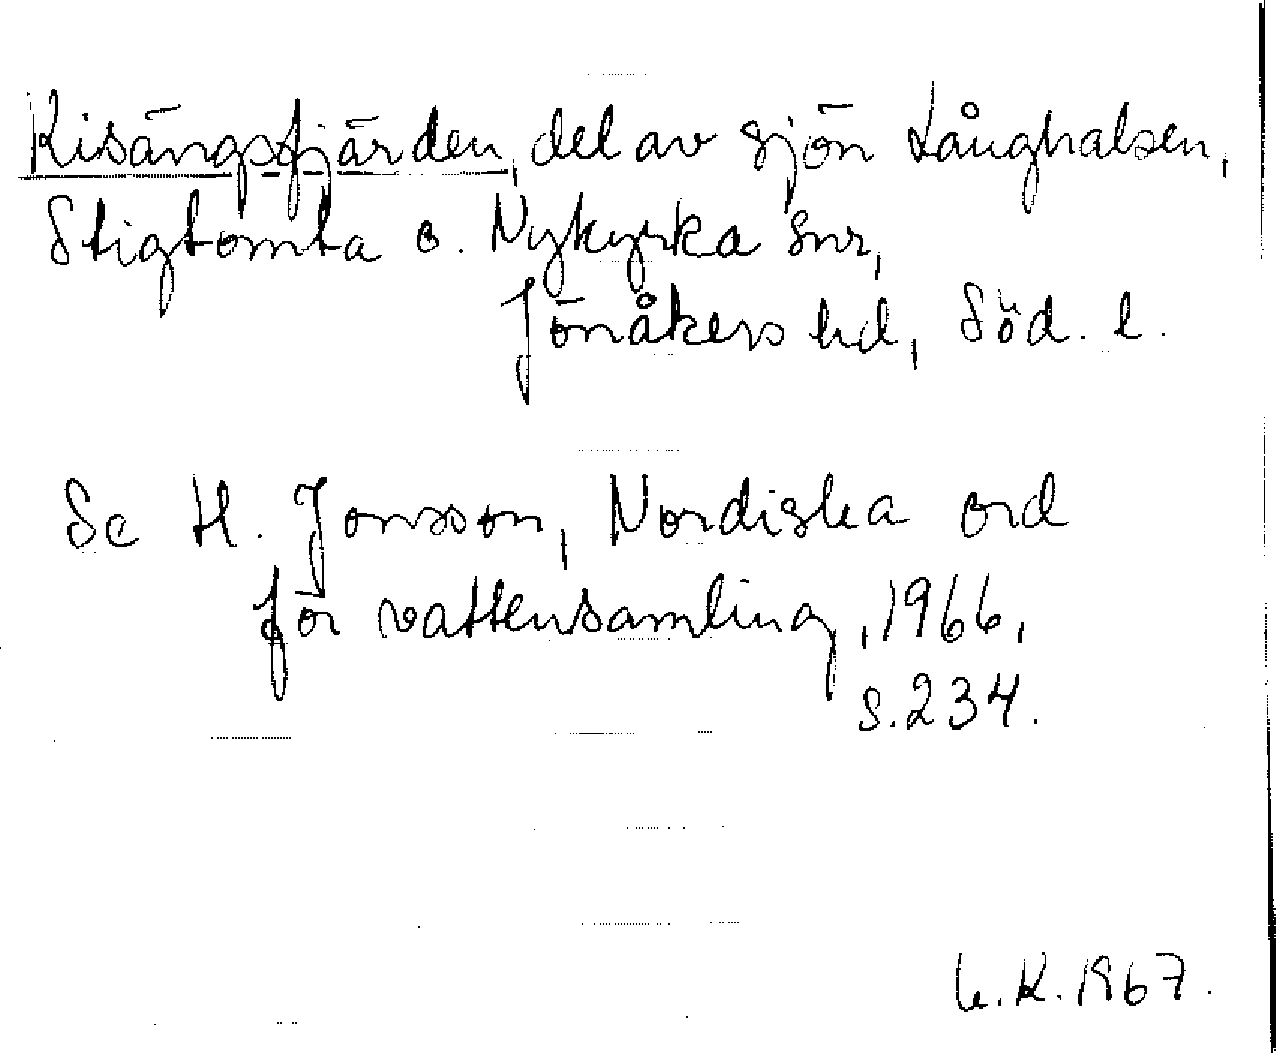 Kisängsfjärden, del av sjön Långhalsen,
Stigtomta o. Nykyrka snr,
Jönåkers hd, Söd. l.
Se H. Jonsson, Nordiska ord
för vattensamling, 1966,
s. 234.
K. 1967.